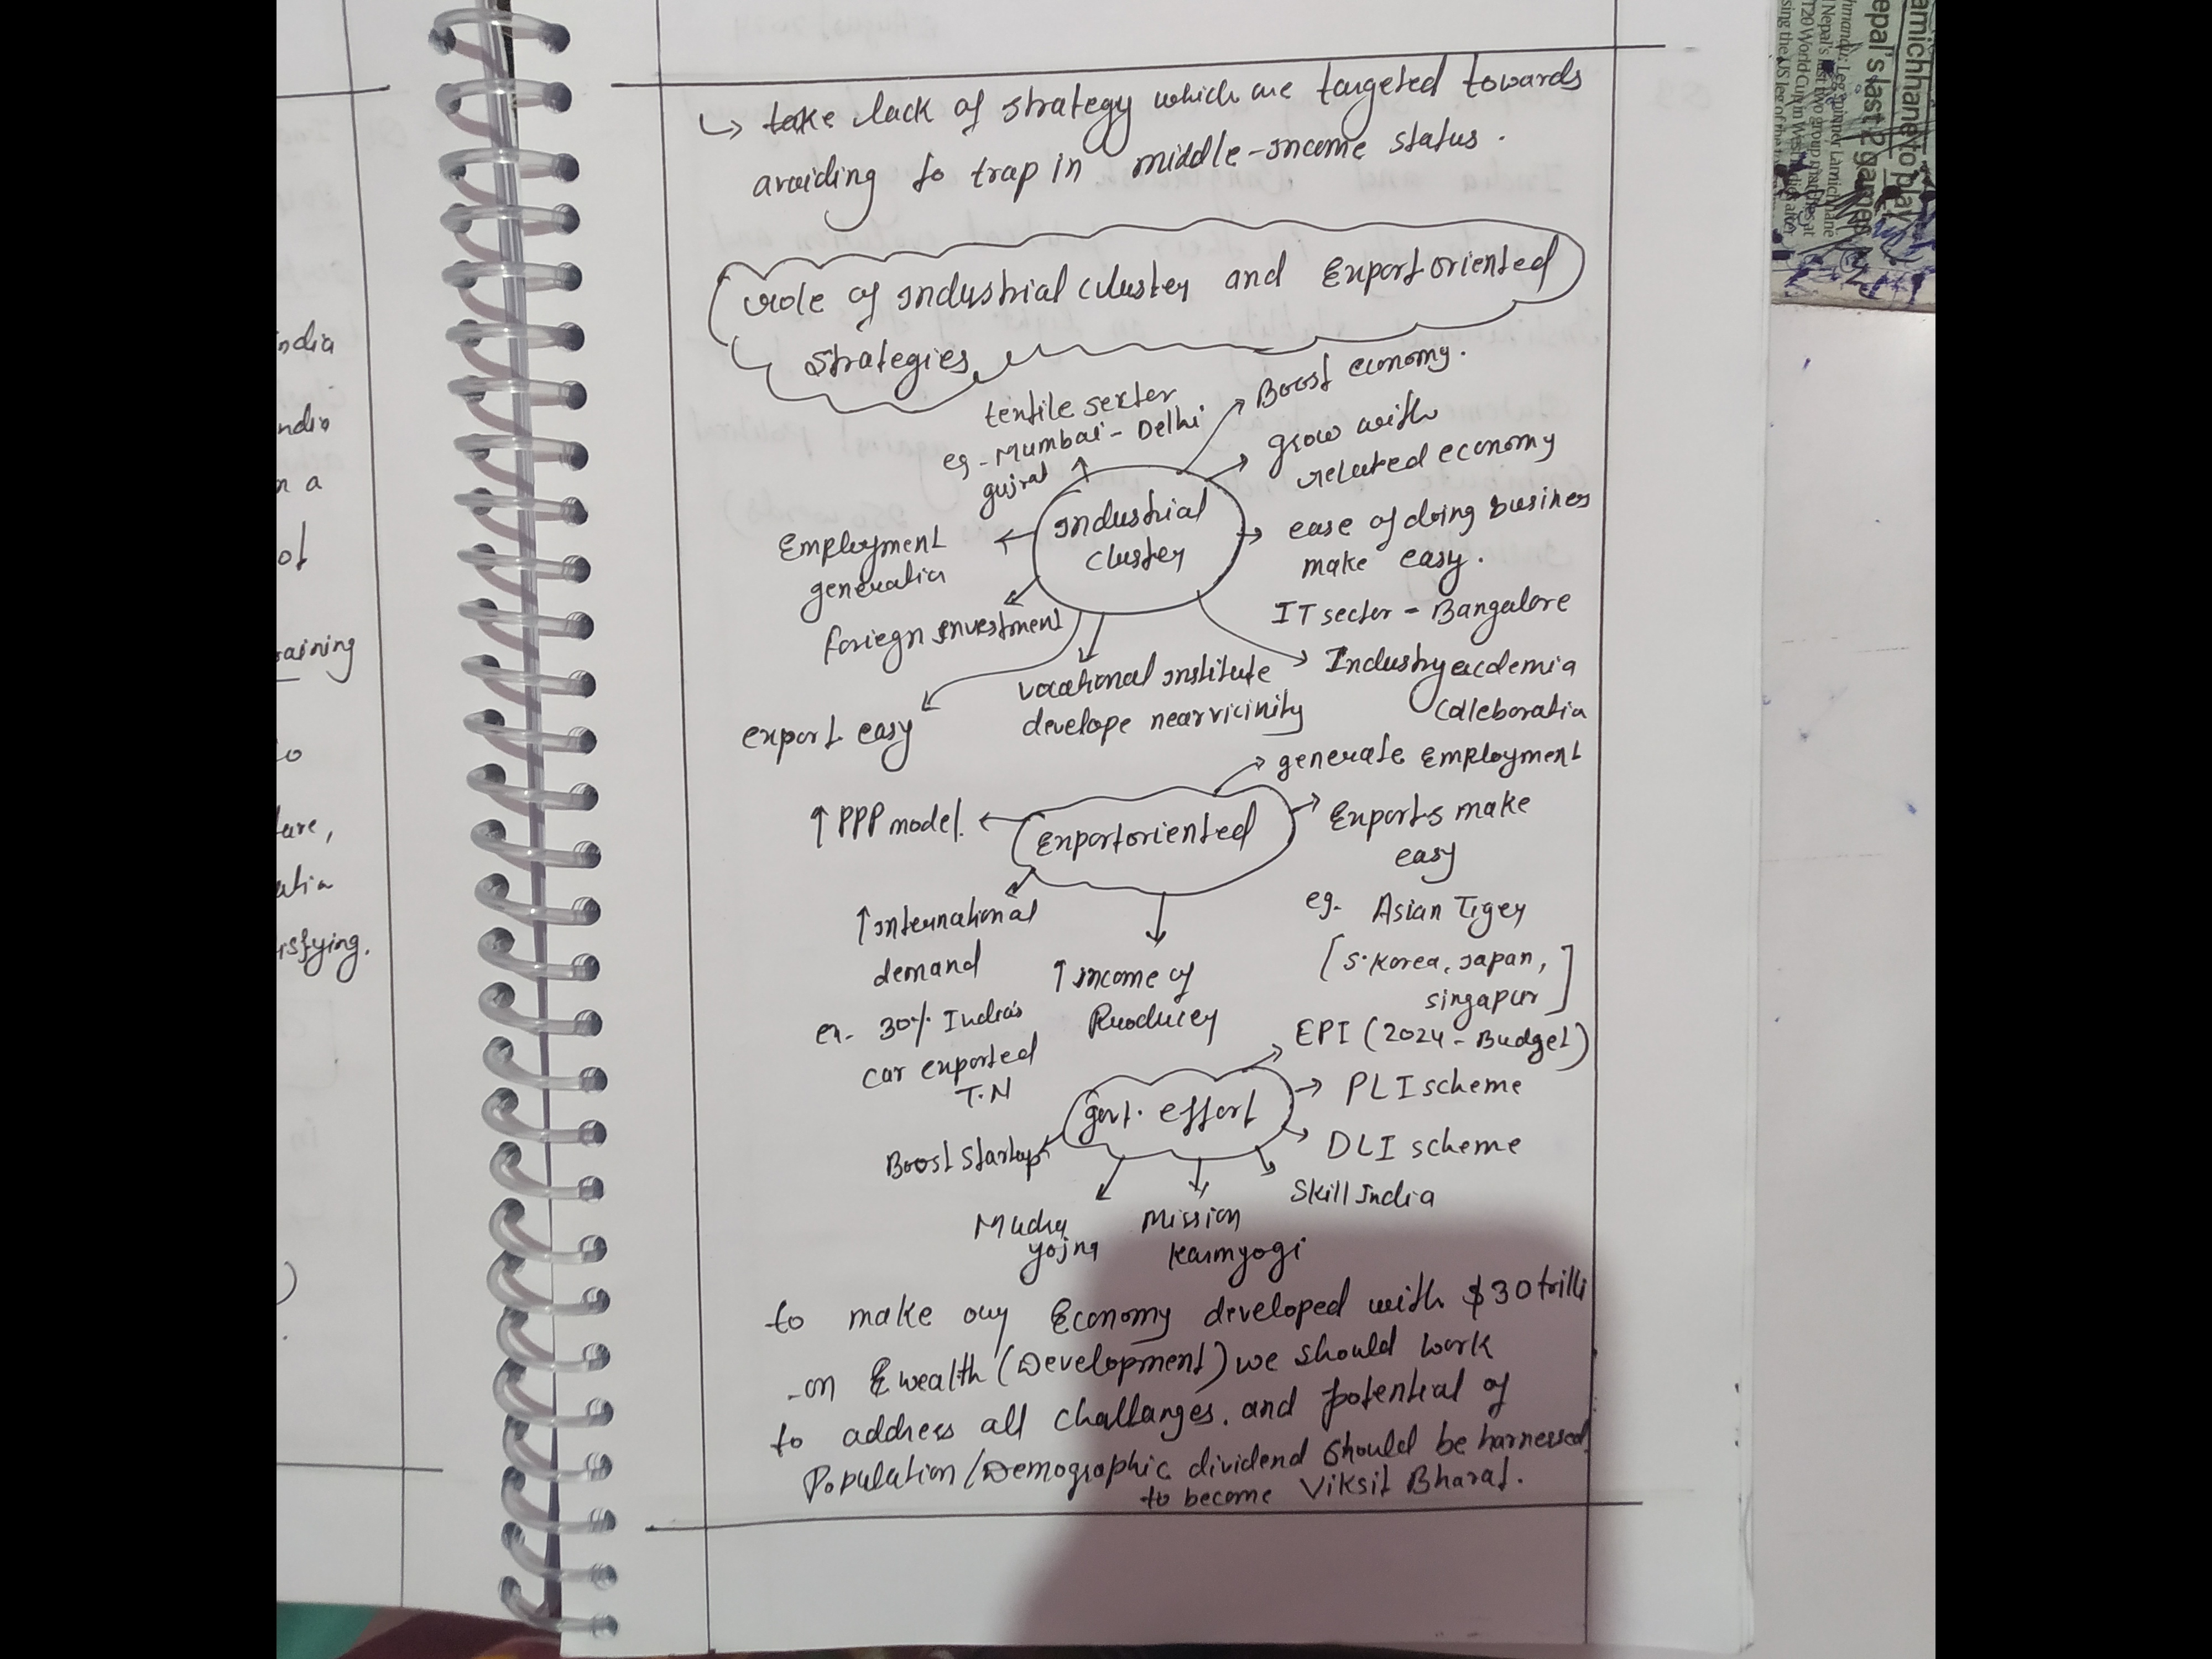 ↳ take lack of strategy which are targeted towards
avoiding to trap in middle-income status.
role of industrial cluster and Export oriented
strategies
textile sector
eg - Mumbai - Delhi
gujrat
Boost economy.
grow with
related economy
Industrial
cluster
Employment
generation
ease of doing busines
make easy.
foriegn investment
IT sector - Bangalore
vocational institute
develope near vicinity
Industry acdemia
Colleboratia
export easy
generate Employment
↑ PPP model.
Exportoriented
Exports make
easy
↑ international
demand
ex- 30% India's
car exported
T.N
↑ income of
Producer
eg. Asian Tiger
[S. Korea, Japan,
singapur]
govt. effort
EPI (2024 - Budget)
PLI scheme
DLI scheme
Skill India
Mission
Karmyogi
Mudra
yojna
Boost Startup
to make our Economy developed with $30 trilli
-on & wealth (Development) we should work
to address all challanges, and potential of
Population/Demographic dividend should be harnessed
to become Viksit Bharat.
ndia
ndia
n a
of
raining
ture,
atia
isfying.
amichhane to play
epal's last 2 games
hmandu: Leg-spinner Lamichhane
Nepal's last two group matches at
T20 World Cup in West Indies after
sing the US leg of the